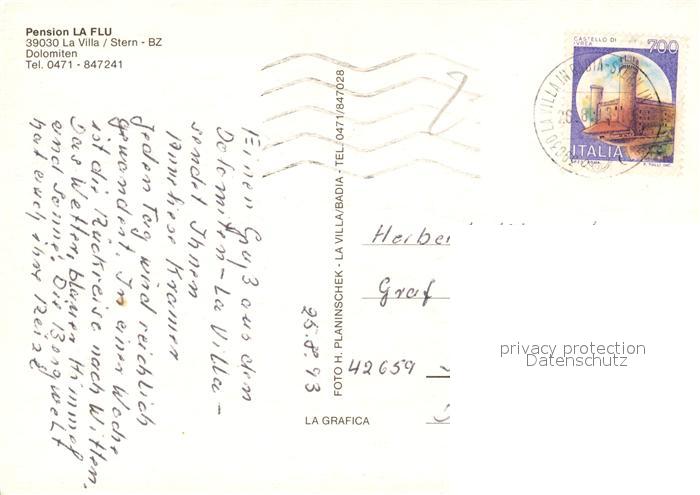 Pension LA FLU
39030 La Villa / Stern - BZ
Dolomiten
Tel. 0471 - 847241
CASTELLO DI
IVREA
700
ITALIA
Einen Gruß aus den
Dolomiten - La Villa -
sendet Ihnen
Kramer
Jeden Tag wird reichlich
gewandert. In einer Woche
ist die Rückreise nach Witten.
Das Wetter, blauer Himmel
und Sonne. Die Bergwelt
hat auch ihre Reize
25.8.93
FOTO H. PLANINSCHEK - LA VILLA/BADIA - TEL. 0471/847028
LA GRAFICA
Graf
42659
privacy protection
Datenschutz